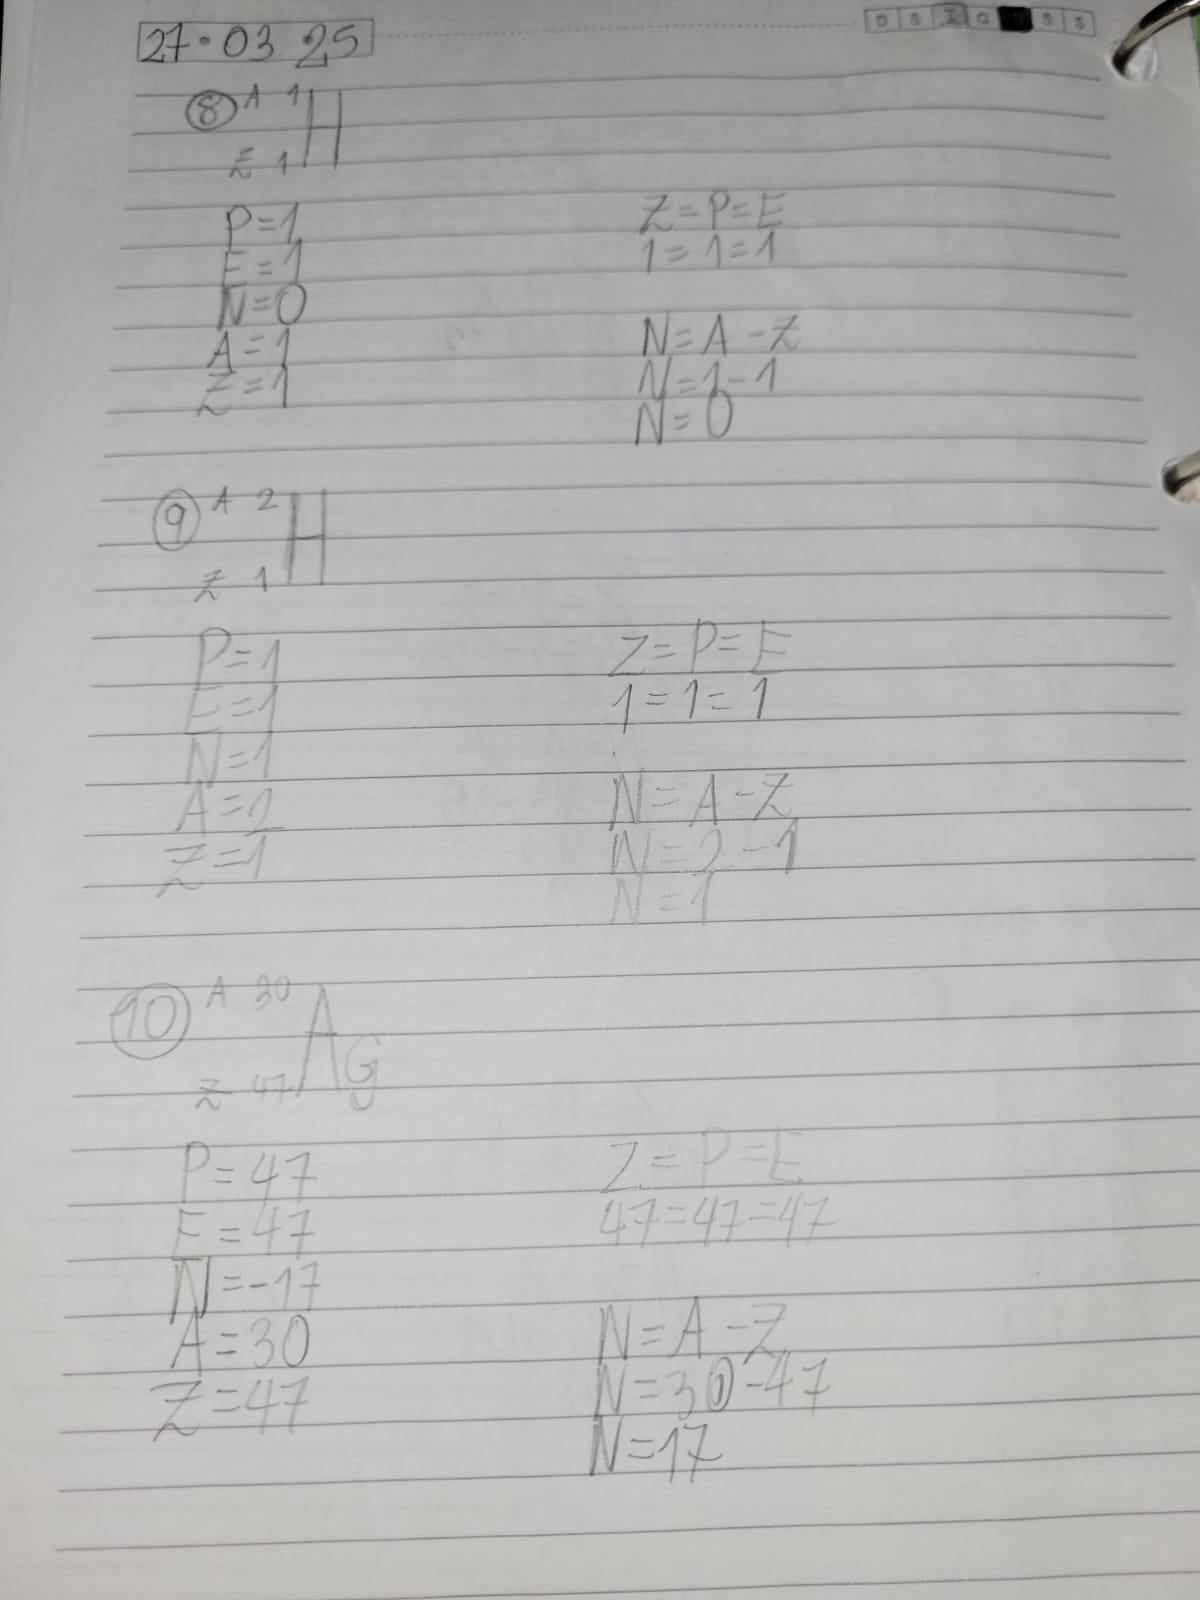 27·03 25
D S T Q S S
8 A 1 H
Z 1
P=1
E=1
N=0
A=1
Z=1
Z=P=E
1=1=1
N=A-Z
N=1-1
N=0
9 A 2 H
Z 1
P=1
E=1
N=1
A=2
Z=1
Z=P=E
1=1=1
N=A-Z
N=2-1
N=1
10 A 30 AG
Z 47
P=47
E=47
N=-17
A=30
Z=47
Z=P=E
47=47=47
N=A-Z
N=30-47
N=17